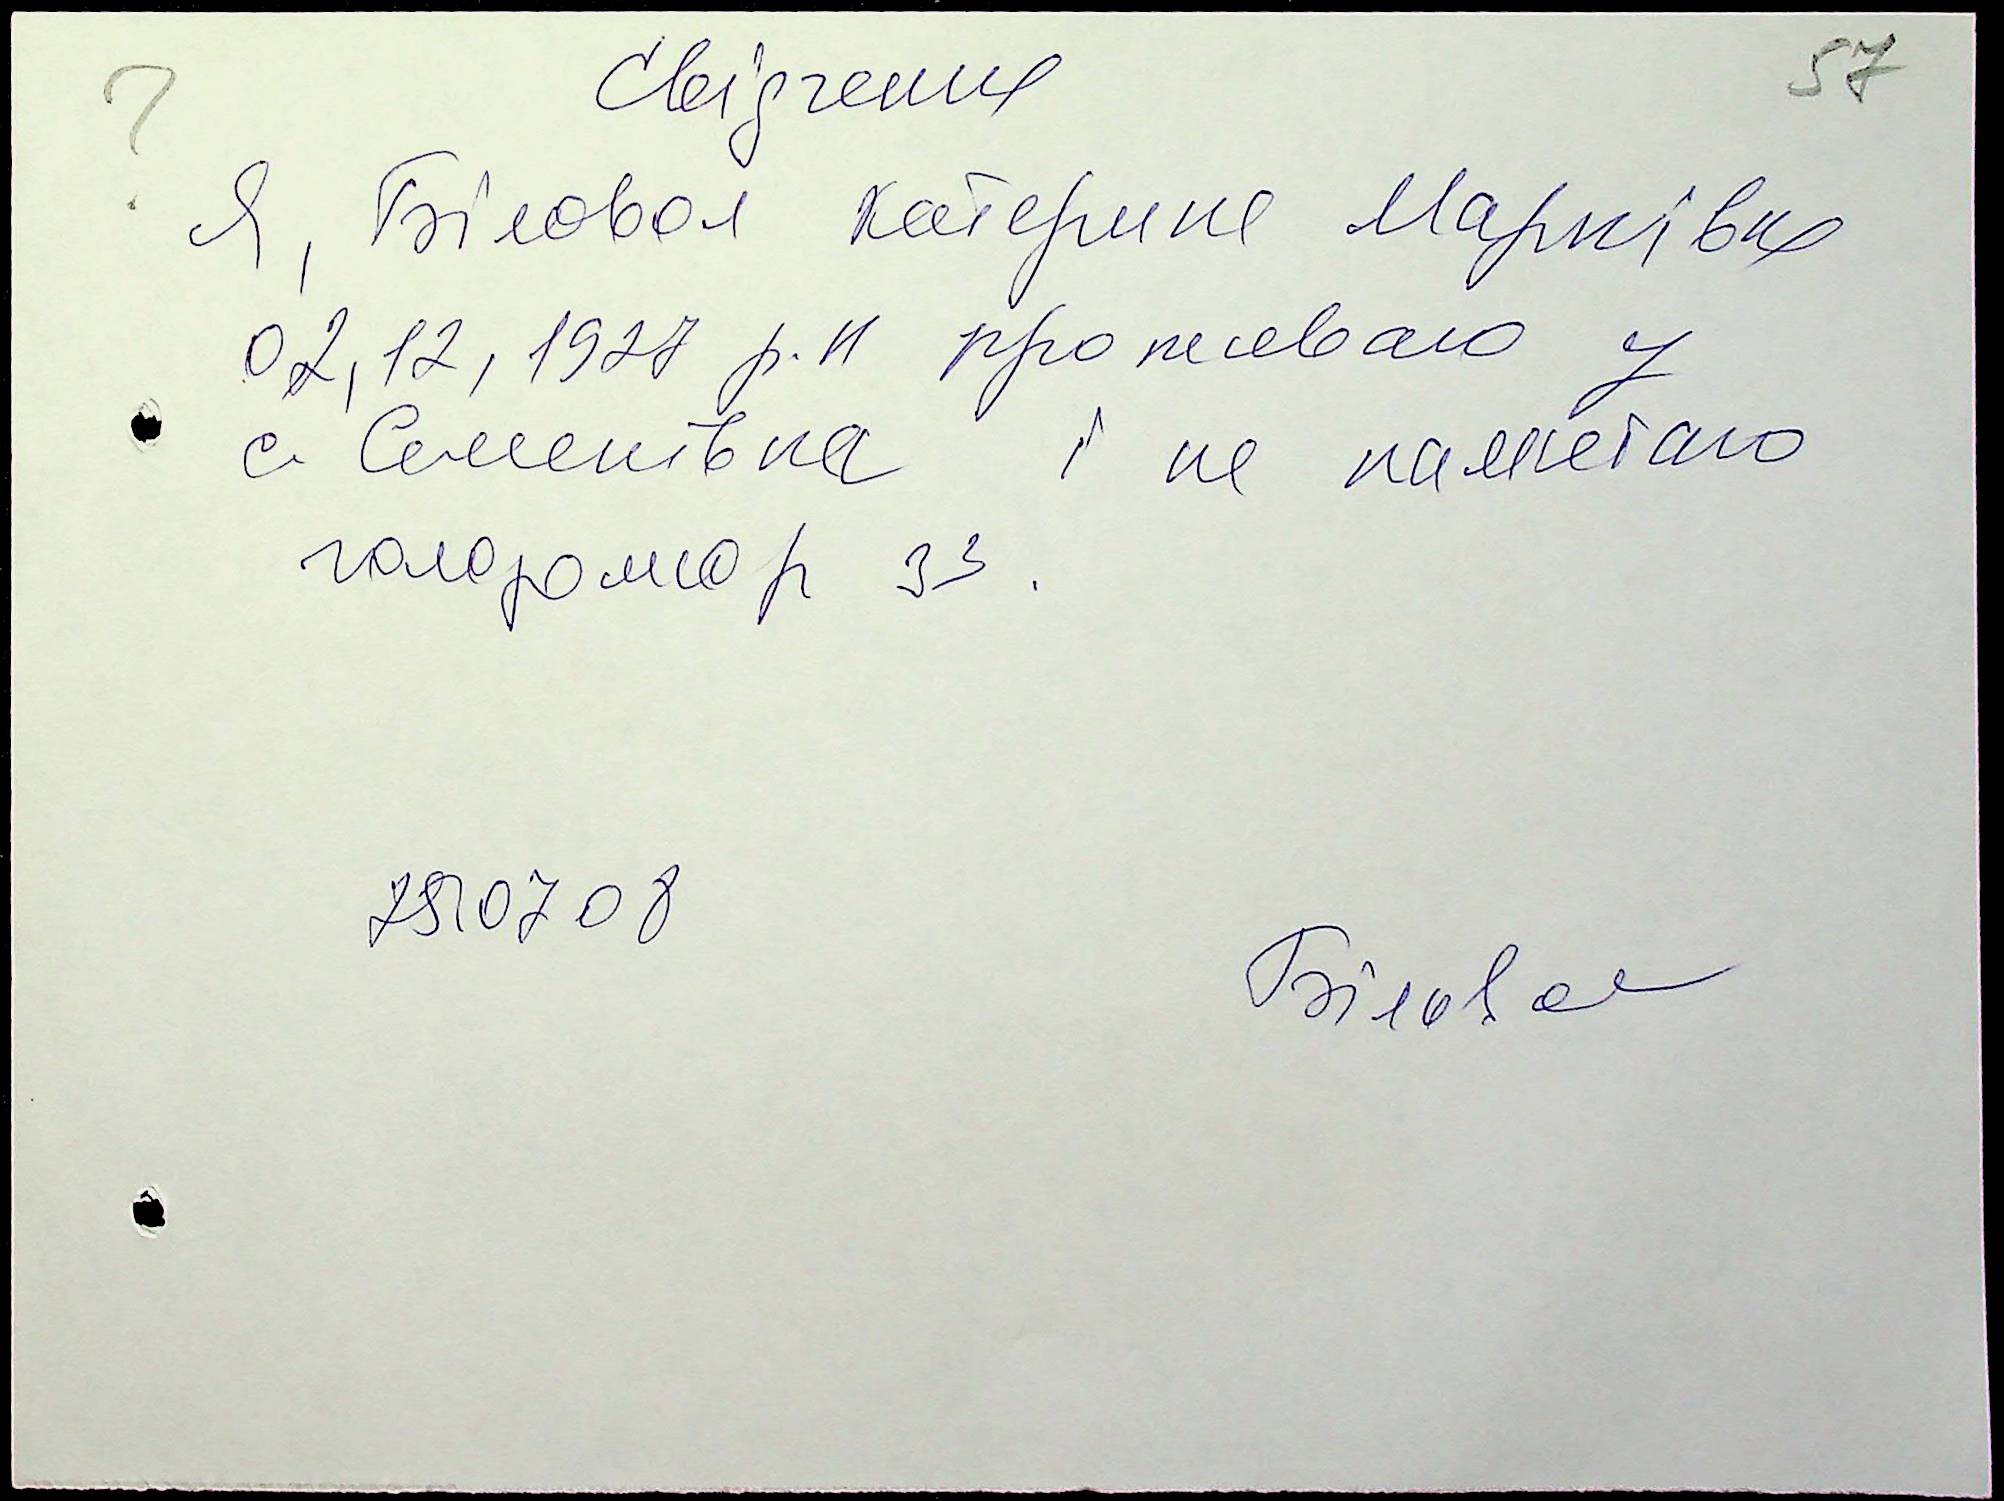 57
?
Свідчення
Я, Біловол Катерина Марківна
02,12,1927 р.н проживаю у
с. Семенівка і не памнетаю
голодомор 33.
07 08
Біловол